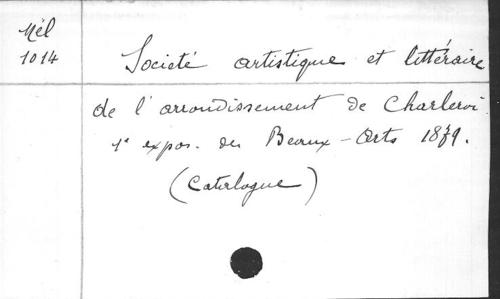 Mél
1014
Société artistique et littéraire
de l'arrondissement de Charleroi
1e expos. des Beaux-Arts 1879.
(Catalogue)